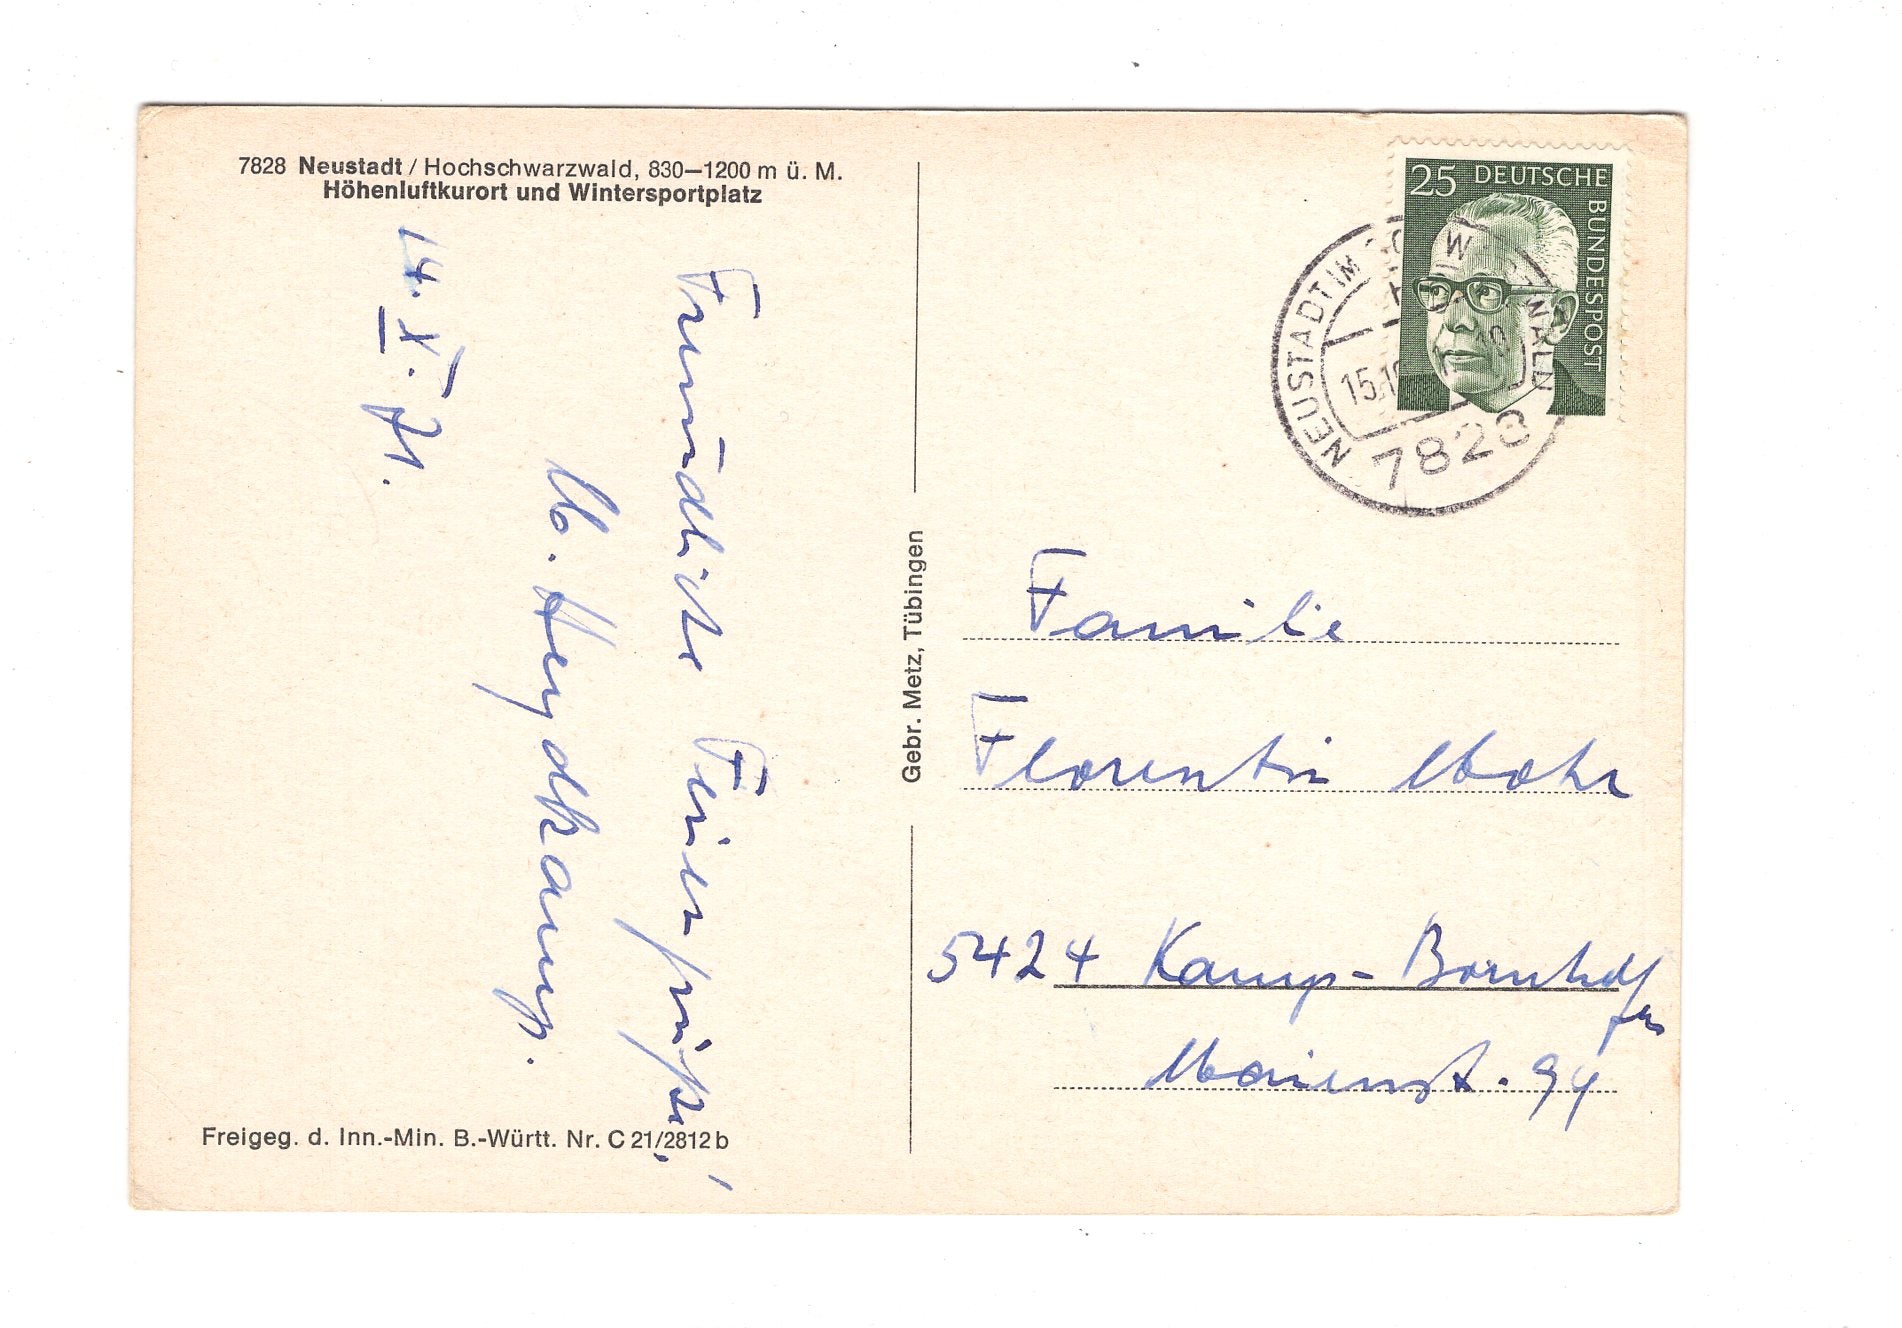 7828 Neustadt / Hochschwarzwald, 830–1200 m ü. M.
Höhenluftkurort und Wintersportplatz
14. X. 71.
Freundliche Feriengrüße!
M. Heydkamp.
Freigeg. d. Inn.-Min. B.-Württ. Nr. C 21/2812 b
Gebr. Metz, Tübingen
25 DEUTSCHE BUNDESPOST
NEUSTADT IM SCHWARZWALD
15.10
7828
Familie
Florentin Mohr
5424 Kamp-Bornhofen
Marienst. 94